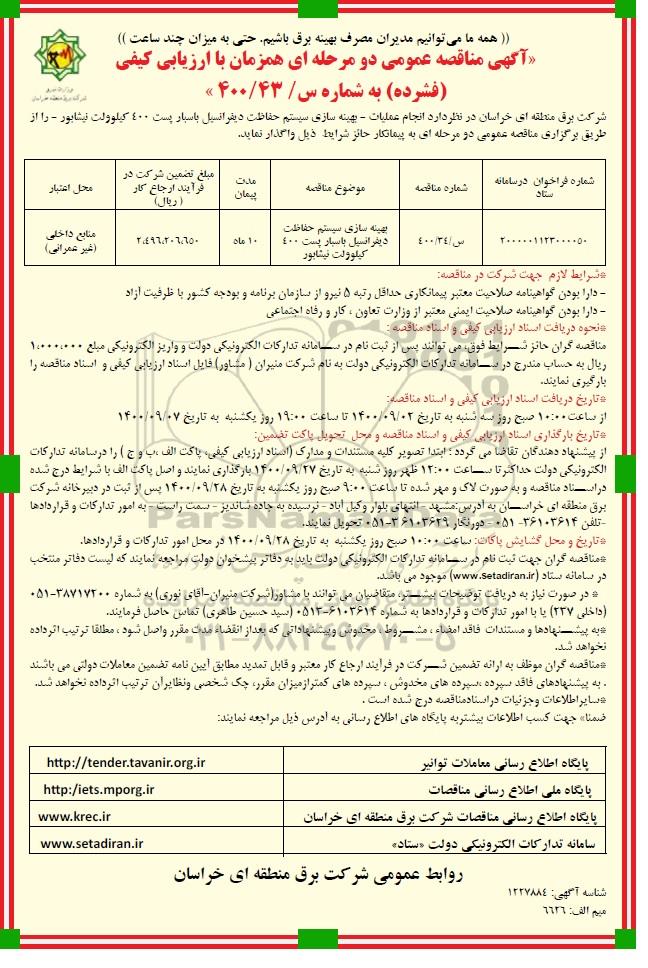 (( همه ما می‌توانیم مدیران مصرف بهینه برق باشیم. حتی به میزان چند ساعت ))
«آگهی مناقصه عمومی دو مرحله ای همزمان با ارزیابی کیفی
(فشرده) به شماره س/ ۴۰۰/۴۳ »
شرکت برق منطقه ای خراسان
شرکت برق منطقه ای خراسان در نظردارد انجام عملیات - بهینه سازی سیستم حفاظت دیفرانسیل باسبار پست ۴۰۰ کیلوولت نیشابور - را از
طریق برگزاری مناقصه عمومی دو مرحله ای به پیمانکار حائز شرایط ذیل واگذار نماید.
شماره فراخوان درسامانه ستاد | شماره مناقصه | موضوع مناقصه | مدت پیمان | مبلغ تضمین شرکت در فرآیند ارجاع کار (ریال) | محل اعتبار
۲۰۰۰۰۰۱۱۲۳۰۰۰۰۵۰ | س/۴۰۰/۳۴ | بهینه سازی سیستم حفاظت دیفرانسیل باسبار پست ۴۰۰ کیلوولت نیشابور | ۱۰ ماه | ۲،۴۹۶،۲۰۶،۶۵۰ | منابع داخلی (غیر عمرانی)
*شرایط لازم جهت شرکت در مناقصه:
- دارا بودن گواهینامه صلاحیت معتبر پیمانکاری حداقل رتبه ۵ نیرو از سازمان برنامه و بودجه کشور با ظرفیت آزاد
- دارا بودن گواهینامه صلاحیت ایمنی معتبر از وزارت تعاون ، کار و رفاه اجتماعی
*نحوه دریافت اسناد ارزیابی کیفی و اسناد مناقصه :
مناقصه گران حائز شرایط فوق، می توانند پس از ثبت نام در سامانه تدارکات الکترونیکی دولت و واریز الکترونیکی مبلغ ۱،۰۰۰،۰۰۰
ریال به حساب مندرج در سامانه تدارکات الکترونیکی دولت به نام شرکت منیران ( مشاور) فایل اسناد ارزیابی کیفی و اسناد مناقصه را
بارگیری نمایند.
*تاریخ دریافت اسناد ارزیابی کیفی و اسناد مناقصه:
از ساعت ۱۰:۰۰ صبح روز سه شنبه به تاریخ ۱۴۰۰/۰۹/۰۲ تا ساعت ۱۹:۰۰ روز یکشنبه به تاریخ ۱۴۰۰/۰۹/۰۷
*تاریخ بارگذاری اسناد ارزیابی کیفی و اسناد مناقصه و محل تحویل پاکت تضمین:
از پیشنهاد دهندگان تقاضا می گردد : ابتدا تصویر کلیه مستندات و مدارک (اسناد ارزیابی کیفی، پاکت الف ،ب و ج ) را درسامانه تدارکات
الکترونیکی دولت حداکثر تا ساعت ۱۲:۰۰ ظهر روز شنبه به تاریخ ۱۴۰۰/۰۹/۲۷ بارگذاری نمایند و اصل پاکت الف با شرایط درج شده
دراسناد مناقصه و به صورت لاک و مهر شده تا ساعت ۹:۰۰ صبح روز یکشنبه به تاریخ ۱۴۰۰/۰۹/۲۸ پس از ثبت در دبیرخانه شرکت
برق منطقه ای خراسان به آدرس:مشهد - انتهای بلوار وکیل آباد - نرسیده به جاده شاندیز - سمت راست - به امور تدارکات و قراردادها
-تلفن ۳۶۱۰۳۶۱۴-۰۵۱ - دورنگار ۳۶۱۰۳۶۲۹-۰۵۱ تحویل نمایند.
*تاریخ و محل گشایش پاکات: ساعت ۱۰:۰۰ صبح روز یکشنبه به تاریخ ۱۴۰۰/۰۹/۲۸ در محل امور تدارکات و قراردادها.
*مناقصه گران جهت ثبت نام در سامانه تدارکات الکترونیکی دولت باید به دفاتر پیشخوان دولت مراجعه نمایند که لیست دفاتر منتخب
در سامانه ستاد (www.setadiran.ir) موجود می باشد.
* در صورت نیاز به دریافت توضیحات بیشتر، متقاضیان می توانند با مشاور(شرکت منیران-آقای نوری) به شماره ۳۸۷۱۷۲۰۰-۰۵۱
(داخلی ۲۳۷) یا با امور تدارکات و قراردادها به شماره ۶۱۰۳۶۱۴-۰۵۱۳ (سید حسین طاهری) تماس حاصل فرمایند.
*به پیشنهادها و مستندات فاقد امضاء ، مشروط ، مخدوش و پیشنهاداتی که بعداز انقضاء مدت مقرر واصل شود ، مطلقا ترتیب اثرداده
نخواهد شد.
*مناقصه گران موظف به ارائه تضمین شرکت در فرآیند ارجاع کار معتبر و قابل تمدید مطابق آیین نامه تضمین معاملات دولتی می باشند
. به پیشنهادهای فاقد سپرده ،سپرده های مخدوش ، سپرده های کمترازمیزان مقرر، چک شخصی ونظایرآن ترتیب اثرداده نخواهد شد.
*سایراطلاعات وجزئیات دراسنادمناقصه درج شده است .
ضمنا» جهت کسب اطلاعات بیشتربه پایگاه های اطلاع رسانی به آدرس ذیل مراجعه نمایند:
پایگاه اطلاع رسانی معاملات توانیر | http://tender.tavanir.org.ir
پایگاه ملی اطلاع رسانی مناقصات | http:/iets.mporg.ir
پایگاه اطلاع رسانی مناقصات شرکت برق منطقه ای خراسان | www.krec.ir
سامانه تدارکات الکترونیکی دولت «ستاد» | www.setadiran.ir
روابط عمومی شرکت برق منطقه ای خراسان
شناسه آگهی: ۱۲۲۷۸۸۴
میم الف: ۶۶۲۶
۰۲۱-۸۸۳۴۹۶۷۰-۵